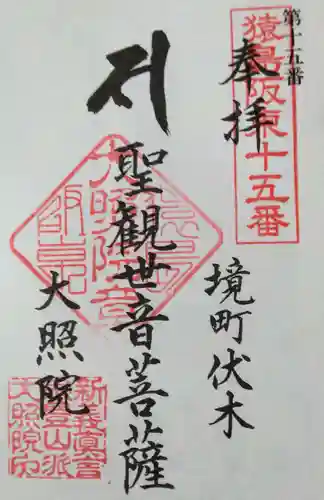 第十五番
猿島阪東十五番
奉拝
境町伏木
聖觀世音菩薩
大照院
新義真言
豊山派
大照院印